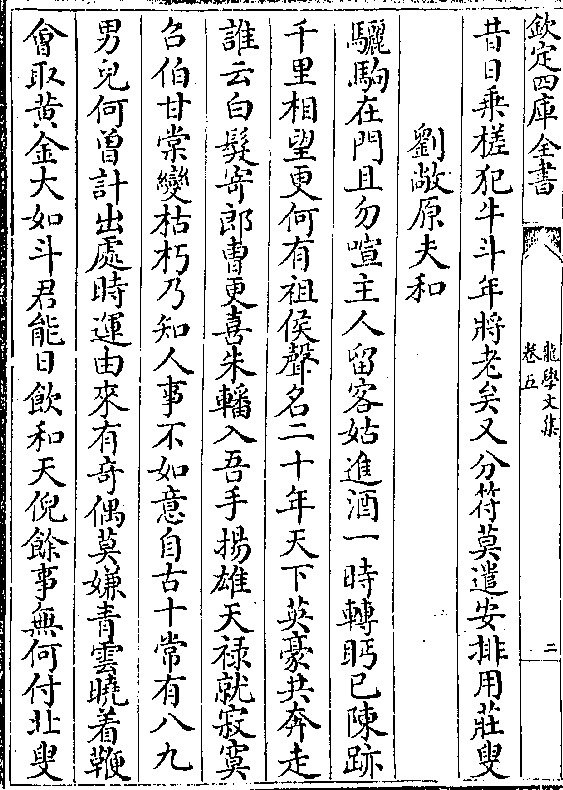 欽定四庫全書
龍學文集
卷五
二
昔日乗槎犯牛斗年將老矣又分符莫遣安排用莊叟
劉敞原夫和
驪駒在門且勿喧主人留客姑進酒一時轉眄已陳跡
千里相望更何有祖侯聲名二十年天下英豪共奔走
誰云白髮寄郎曹更喜朱轓入吾手揚雄天禄就寂寞
召伯甘棠變枯朽乃知人事不如意自古十常有八九
男兒何曾計出處時運由來有奇偶莫嫌青雲曉着鞭
會取黄金大如斗君能日飲和天倪餘事無何付北叟